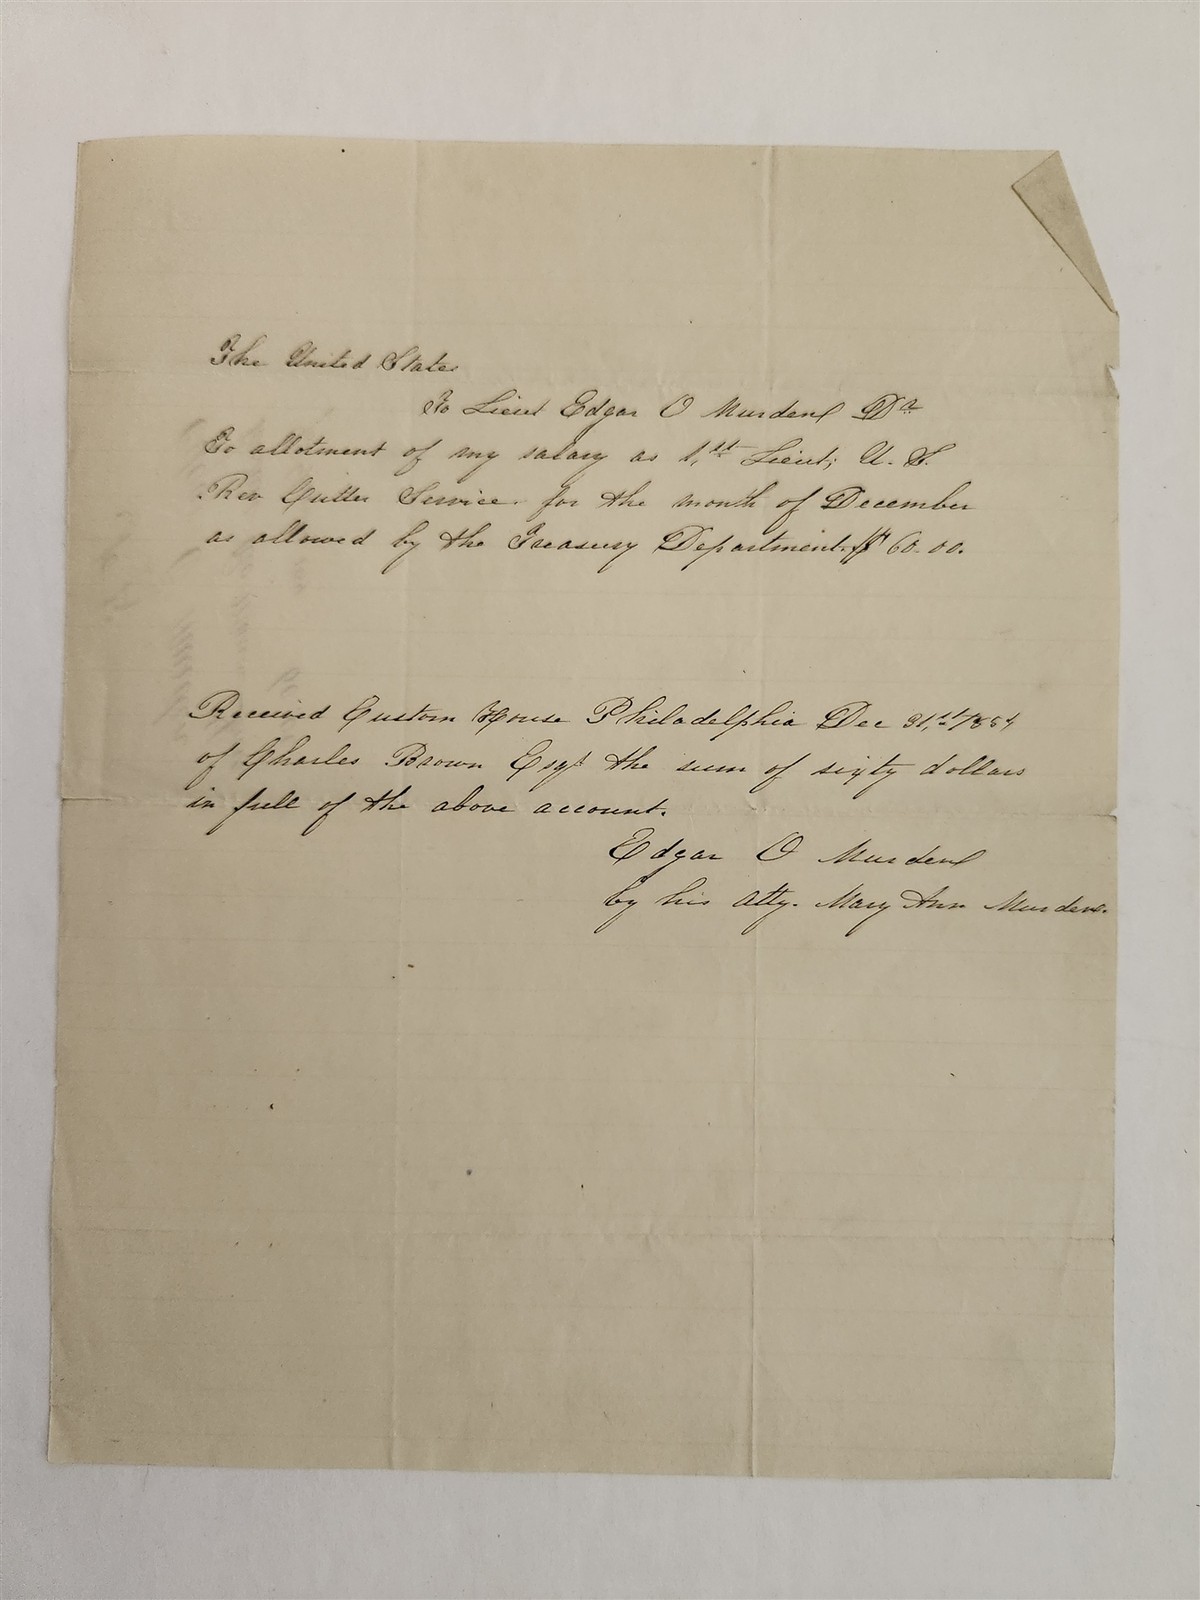 The United States
To Lieut Edgar O Murden Dr
To allotment of my salary as 1,st Lieut; U. S.
Rev Cutter Service. for the month of December
as allowed by the Treasury Department. $ 60.00.
Received Custom House Philadelphia Dec 31,st/854
of Charles Brown Esqr the sum of sixty dollars
in full of the above account.
Edgar O Murden
by his Atty. Mary Ann Murden.